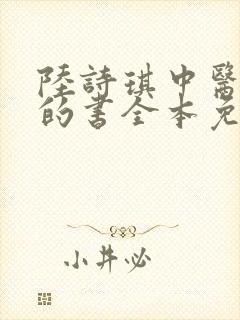 陸詩琪中醫
的書全本免
小井必